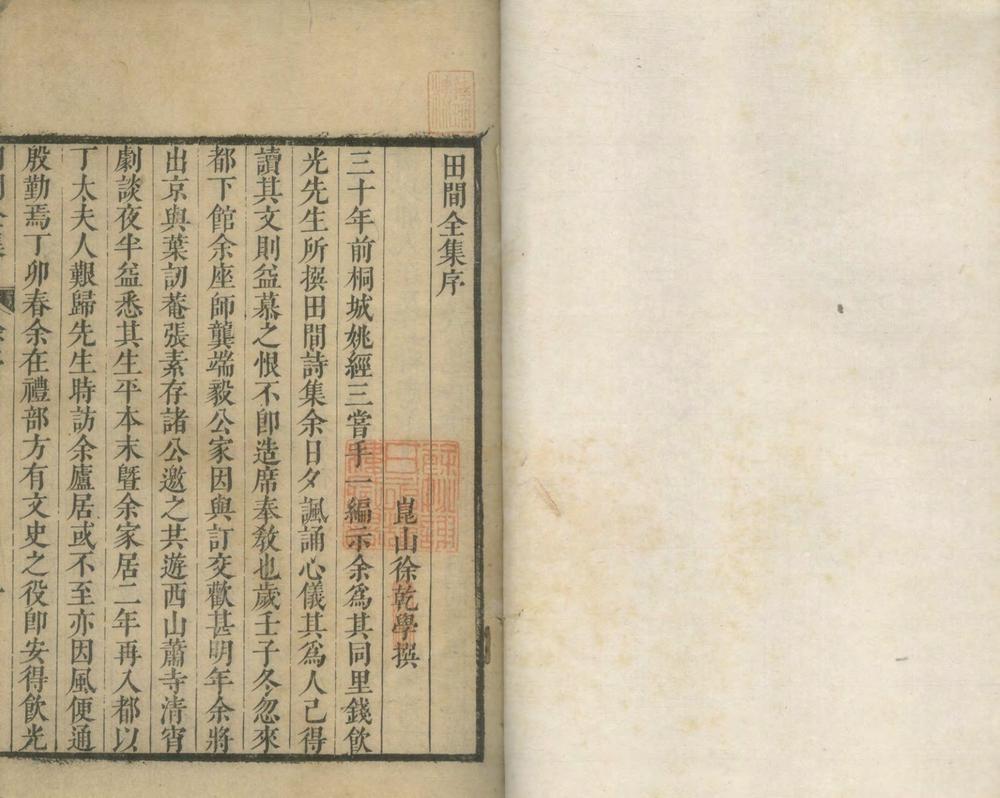 田間全集序
崑山徐乾學撰
三十年前桐城姚經三嘗手一編示余爲其同里錢飲
光先生所撰田間詩集余日夕諷誦心儀其爲人己得
讀其文則益慕之恨不卽造席奉教也歲壬子冬忽來
都下館余座師龔端毅公家因與訂交歡甚明年余將
出京與葉訒菴張素存諸公邀之共遊西山蕭寺清宵
劇談夜半益悉其生平本末曁余家居二年再入都以
丁太夫人艱歸先生時訪余廬居或不至亦因風便通
殷勤焉丁卯春余在禮部方有文史之役卽安得飲光